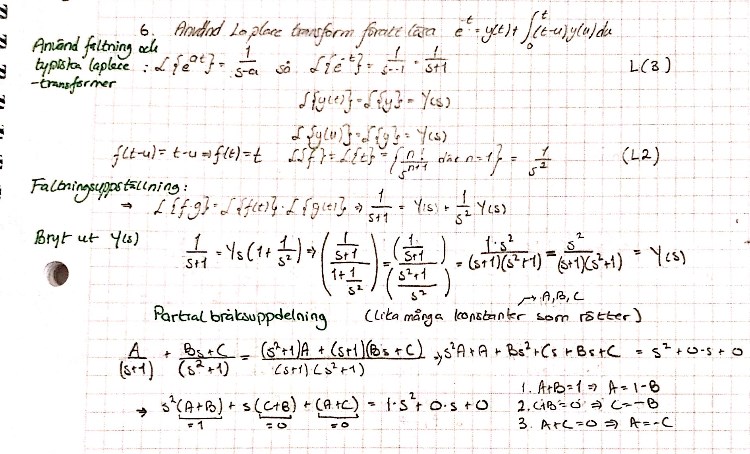 6. Använd Laplace transform för att lösa e^-t = y(t) + ∫_0^t (t-u)y(u)du
Använd faltning och
typiska laplace : L{e^at} = 1/(s-a) så L{e^-t} = 1/(s--1) = 1/(s+1) L(3)
-transformer
L{y(t)} = L{y} = Y(s)
L{y(u)} = L{y} = Y(s)
f(t-u) = t-u ⇒ f(t) = t L{f} = L{t} = {n!/s^(n+1) där n=1} = 1/s^2 (L2)
Faltningsuppställning:
⇒ L{f·g} = L{f(t)}·L{g(t)} ⇒ 1/(s+1) = Y(s) + 1/s^2 Y(s)
Bryt ut Y(s) 1/(s+1) = Ys(1+1/s^2) ⇒ ((1/(s+1))/(1+1/s^2)) = ((1/(s+1))/((s^2+1)/s^2)) = 1·s^2/((s+1)(s^2+1)) = s^2/((s+1)(s^2+1)) = Y(s)
→ A, B, C
Partialbråksuppdelning (Lika många konstanter som rötter)
A/(s+1) + (Bs+C)/(s^2+1) = ((s^2+1)A + (s+1)(Bs+C))/((s+1)(s^2+1)) ⇒ s^2A+A+Bs^2+Cs+Bs+C = s^2+0·s+0
→ s^2(A+B) + s(C+B) + (A+C) = 1·s^2+0·s+0
=1 =0 =0
1. A+B=1 ⇒ A=1-B
2. C+B=0 ⇒ C=-B
3. A+C=0 ⇒ A=-C